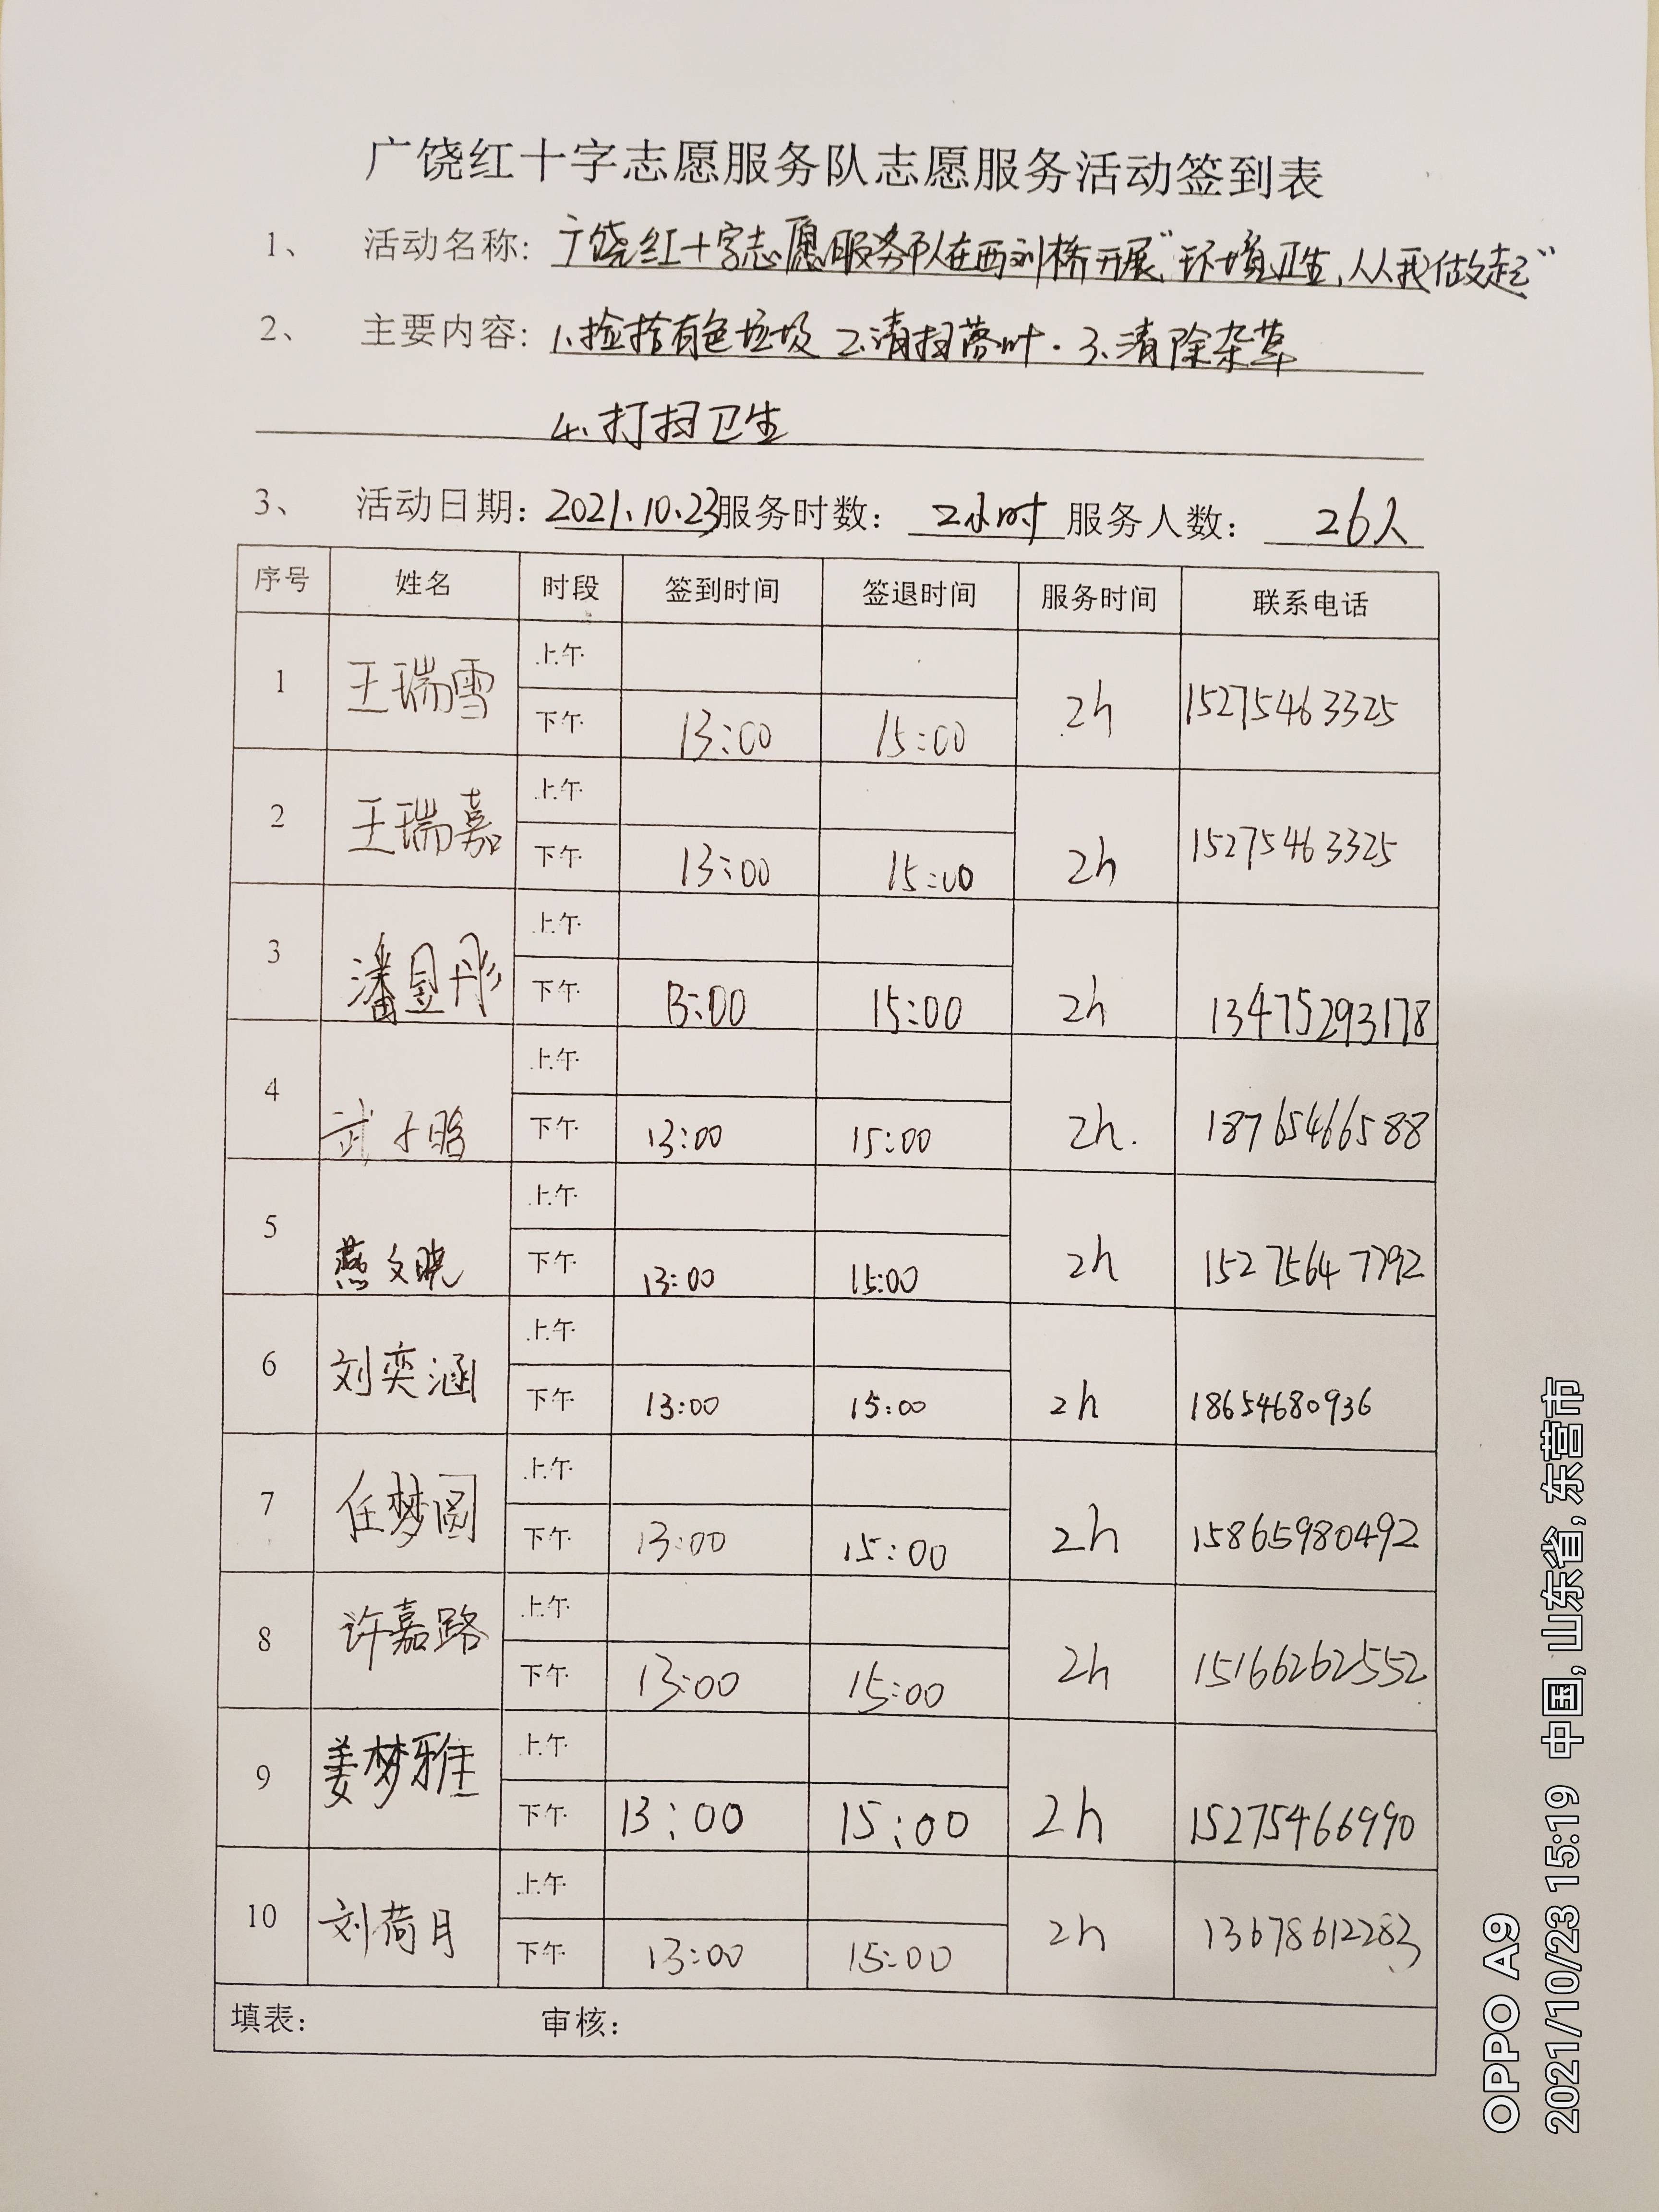 广饶红十字志愿服务队志愿服务活动签到表
1、 活动名称: 广饶红十字志愿服务队在西刘桥开展"环境卫生,人人我做起"
2、 主要内容: 1、捡拾有色垃圾 2、清扫落叶. 3、清除杂草
4、打扫卫生
3、 活动日期: 2021.10.23 服务时数: 2小时 服务人数: 26人
序号 姓名 时段 签到时间 签退时间 服务时间 联系电话
1 王瑞雪 上午
下午 13:00 15:00 2h 15275463325
2 王瑞嘉 上午
下午 13:00 15:00 2h 15275463325
3 潘昱彤 上午
下午 13:00 15:00 2h 13475293178
4 武子晗 上午
下午 13:00 15:00 2h. 18765466588
5 燕文晓 上午
下午 13:00 15:00 2h 15275647792
6 刘奕涵 上午
下午 13:00 15:00 2h 18654680936
7 任梦圆 上午
下午 13:00 15:00 2h 15865980492
8 许嘉路 上午
下午 13:00 15:00 2h 15166262552
9 姜梦雅 上午
下午 13:00 15:00 2h 15275466990
10 刘荷月 上午
下午 13:00 15:00 2h 13678612283
填表: 审核:
OPPO A9
2021/10/23 15:19 中国, 山东省, 东营市